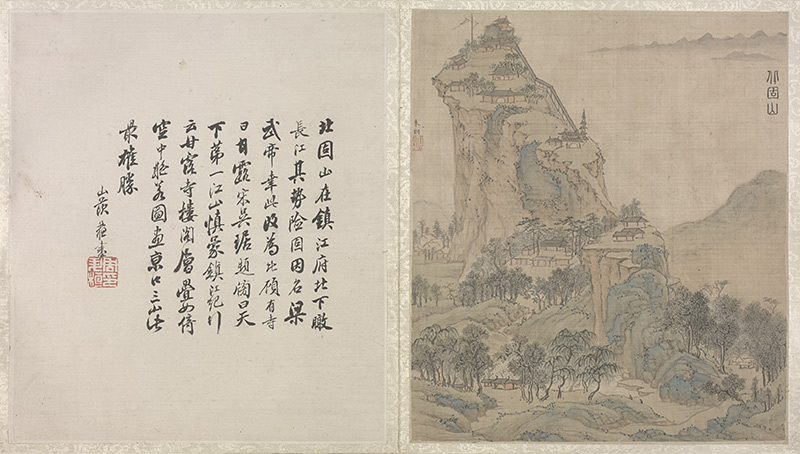 北固山
北固山在鎮江府北下瞰
長江其勢險固因名梁
武帝幸此改為北顧有寺
曰甘露宋吳琚題曰天
下第一江山慎蒙鎮江紀行
云甘露寺樓閣層疊如倚
空中圖畫京口三山此
最雄勝